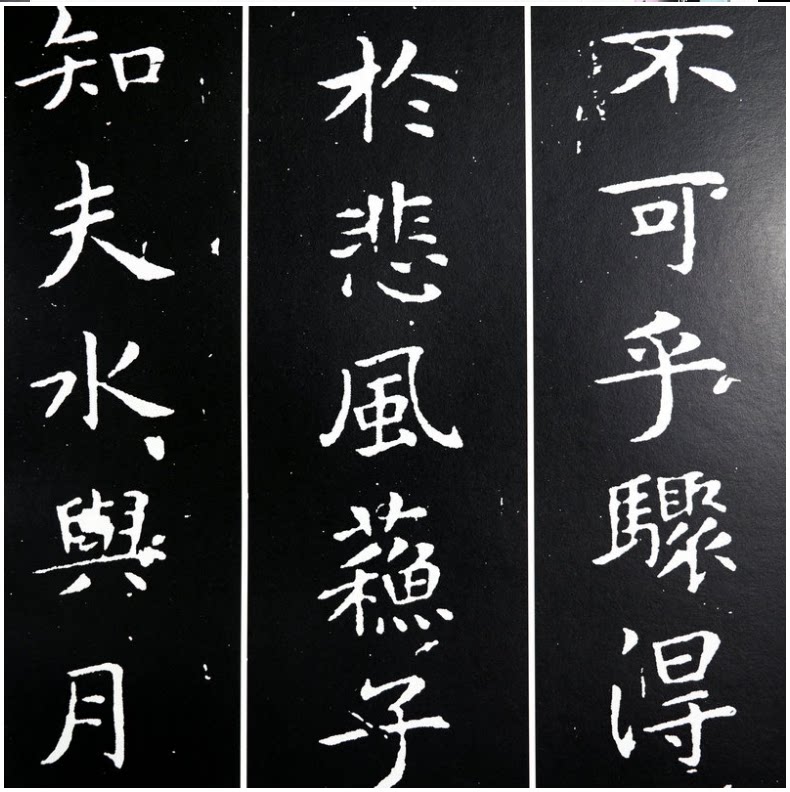 不可乎驟得
於悲風蘓子
知夫水與月